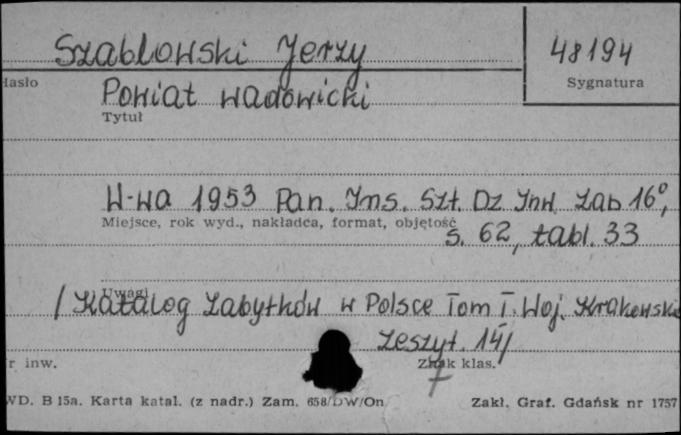 Szablowski Jerzy
48194
Hasło
Sygnatura
Powiat wadowicki
Tytuł
W-wa 1953 Pan. Ins. Szt. Dz Inw. Zab 16°,
Miejsce, rok wyd., nakładca, format, objętość
s. 62, tabl. 33
Uwagi
/Katalog zabytków w Polsce Tom I. Woj. Krakowskie
Zeszyt. 14/
r inw.
Znak klas.
WD. B 15a. Karta katal. (z nadr.) Zam. 658/DW/On
Zakł. Graf. Gdańsk nr 1757